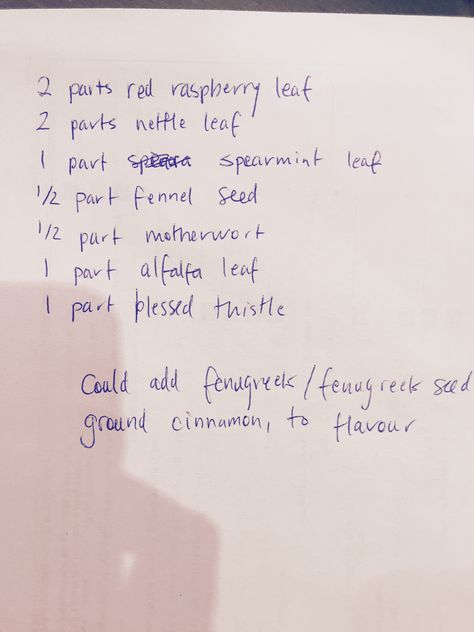 2 parts red raspberry leaf
2 parts nettle leaf
1 part spearmint leaf
1/2 part fennel seed
1/2 part motherwort
1 part alfalfa leaf
1 part blessed thistle
Could add fenugreek/fenugreek seed
ground cinnamon, to flavour